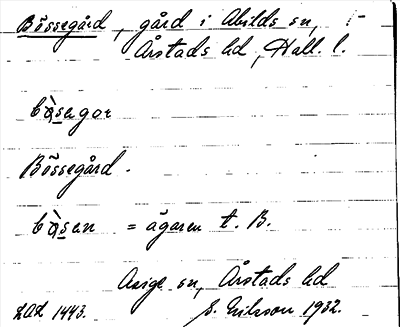 Bössegård, gård i Abilds sn,
Årstads hd, Hall. l.
bò̤sagor
Bössegård.
bò̤sen = ägaren t. B.
Asige sn, Årstads hd
LAL 1443. E. Nilsson 1932.